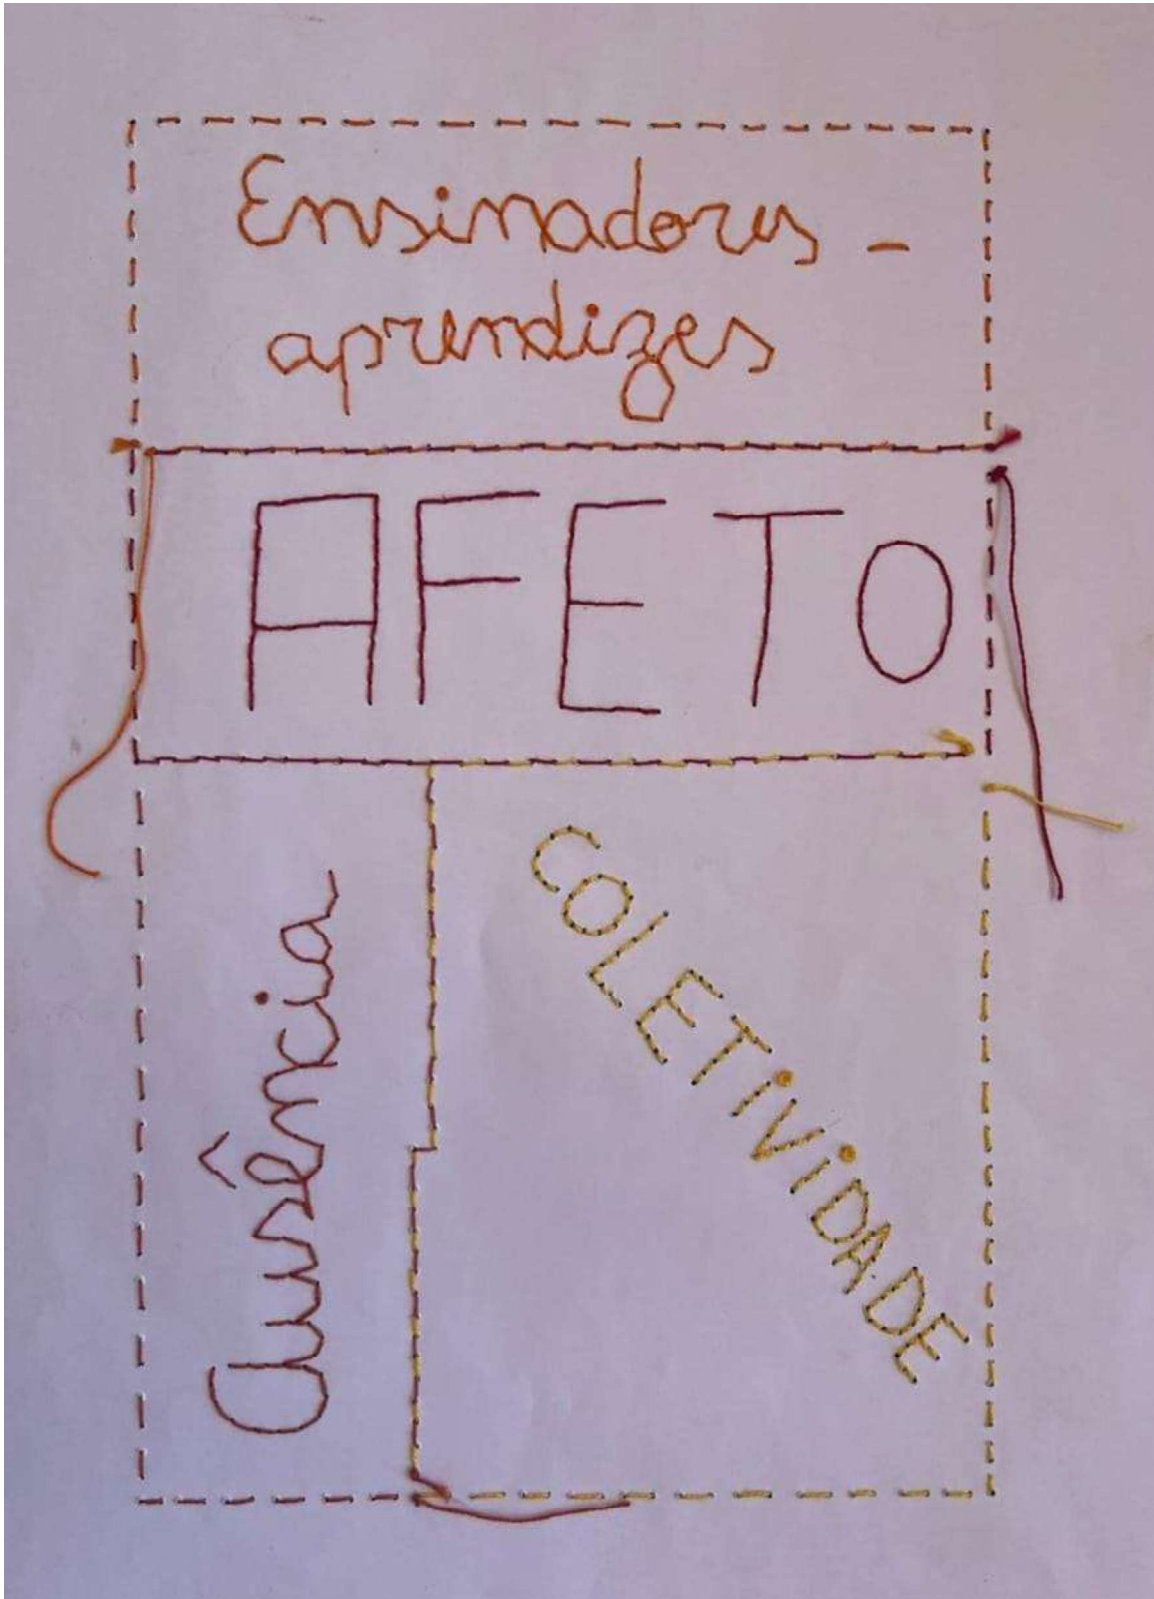 Ensinadores -
aprendizes
AFETO
Ausência
COLETiViDADE